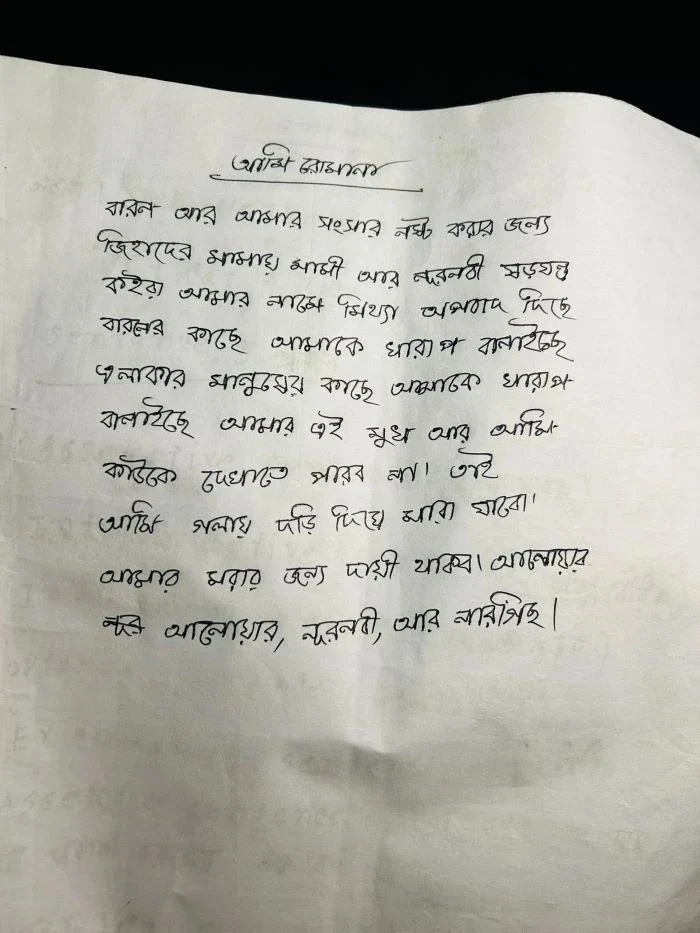 আমি রোমানা
বারন আর আমার সংসার নষ্ট করার জন্য
জিহাদের মামায় মামী আর নূরনবী ষড়যন্ত্র
কইরা আমার নামে মিথ্যা অপবাদ দিছে
বারনের কাছে আমাকে খারাপ বানাইছে
এলাকার মানুষের কাছে আমাকে খারাপ
বানাইছে আমার এই মুখ আর আমি
কাউকে দেখাতে পারব না। তাই
আমি গলায় দড়ি দিয়ে মারা যাবো।
আমার মরার জন্য দায়ী থাকব। আনোয়ার
আনোয়ার, নূরনবী, আর নারগিছ।